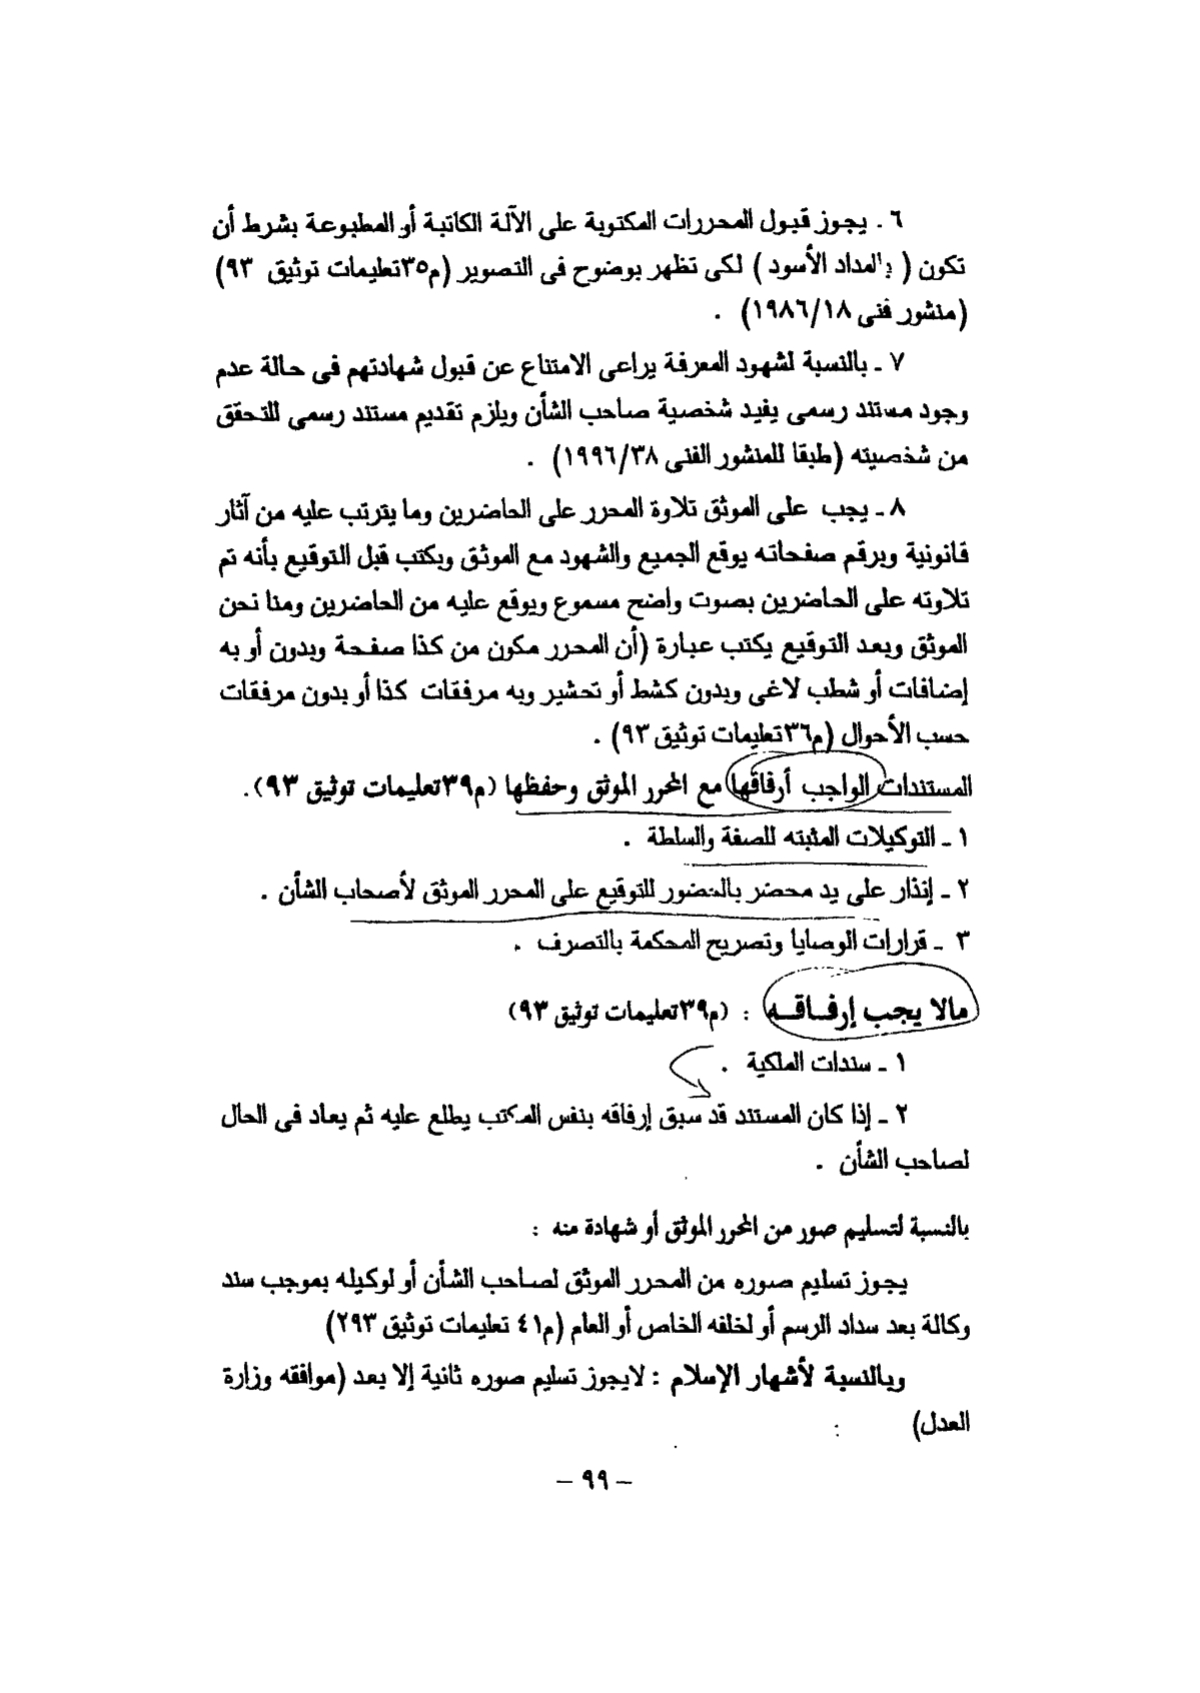 ٦ . يجوز قبول المحررات المكتوبة على الآلة الكاتبة أو المطبوعة بشرط أن
تكون ( بالمداد الأسود ) لكى تظهر بوضوح فى التصوير (م٣٥تعليمات توثيق ٩٣)
(منشور فنى ١٩٨٦/١٨) .
٧ ـ بالنسبة لشهود المعرفة يراعى الامتناع عن قبول شهادتهم فى حالة عدم
وجود مستند رسمى يفيد شخصية صاحب الشأن ويلزم تقديم مستند رسمى للتحقق
من شخصيته (طبقا للمنشور الفنى ١٩٩٦/٣٨) .
٨ ـ يجب على الموثق تلاوة المحرر على الحاضرين وما يترتب عليه من آثار
قانونية ويرقم صفحاته يوقع الجميع والشهود مع الموثق ويكتب قبل التوقيع بأنه تم
تلاوته على الحاضرين بصوت واضح مسموع ويوقع عليه من الحاضرين ومنا نحن
الموثق وبعد التوقيع يكتب عبارة (أن المحرر مكون من كذا صفحة وبدون أو به
إضافات أو شطب لاغى وبدون كشط أو تحشير وبه مرفقات كذا أو بدون مرفقات
حسب الأحوال (م٣٦تعليمات توثيق ٩٣) .
المستندات الواجب أرفاقها مع المحرر الموثق وحفظها (م٣٩تعليمات توثيق ٩٣).
١ ـ التوكيلات المثبته للصفة والسلطة .
٢ ـ إنذار على يد محضر بالحضور للتوقيع على المحرر الموثق لأصحاب الشأن .
٣ ـ قرارات الوصايا وتصريح المحكمة بالتصرف .
مالا يجب إرفاقه : (م٣٩تعليمات توثيق ٩٣)
١ ـ سندات الملكية .
٢ ـ إذا كان المستند قد سبق إرفاقه بنفس المكتب يطلع عليه ثم يعاد فى الحال
لصاحب الشأن .
بالنسبة لتسليم صور من المحرر الموثق أو شهادة منه :
يجوز تسليم صوره من المحرر الموثق لصاحب الشأن أو لوكيله بموجب سند
وكالة بعد سداد الرسم أو لخلفه الخاص أو العام (م٤١ تعليمات توثيق ٢٩٣)
وبالنسبة لأشهار الإسلام : لايجوز تسليم صوره ثانية إلا بعد (موافقه وزارة
العدل) :
– ٩٩ –